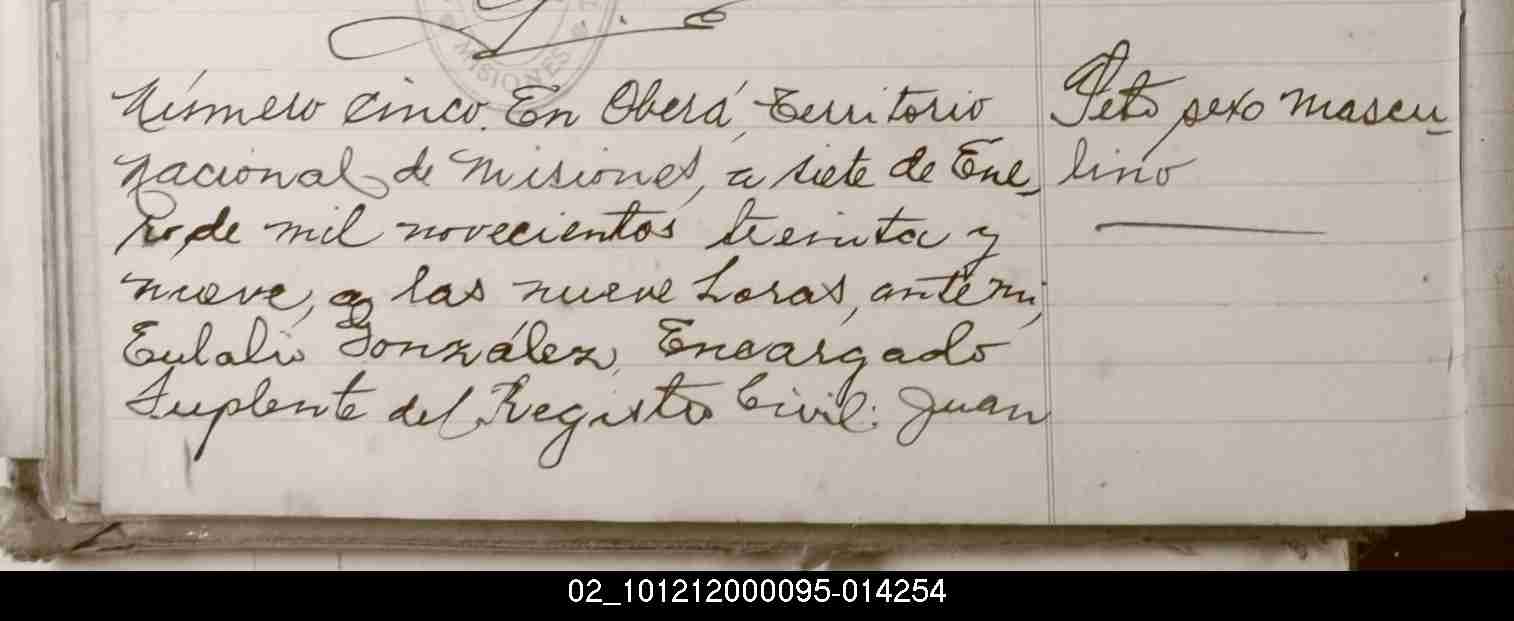 MISIONES
Número cinco. En Oberá, Territorio
Nacional de Misiones, a siete de Ene-
ro de mil novecientos treinta y
nueve, a las nueve horas, ante mi,
Eulalio González, Encargado
Suplente del Registro Civil: Juan
Feto sexo mascu-
lino
02_101212000095-014254